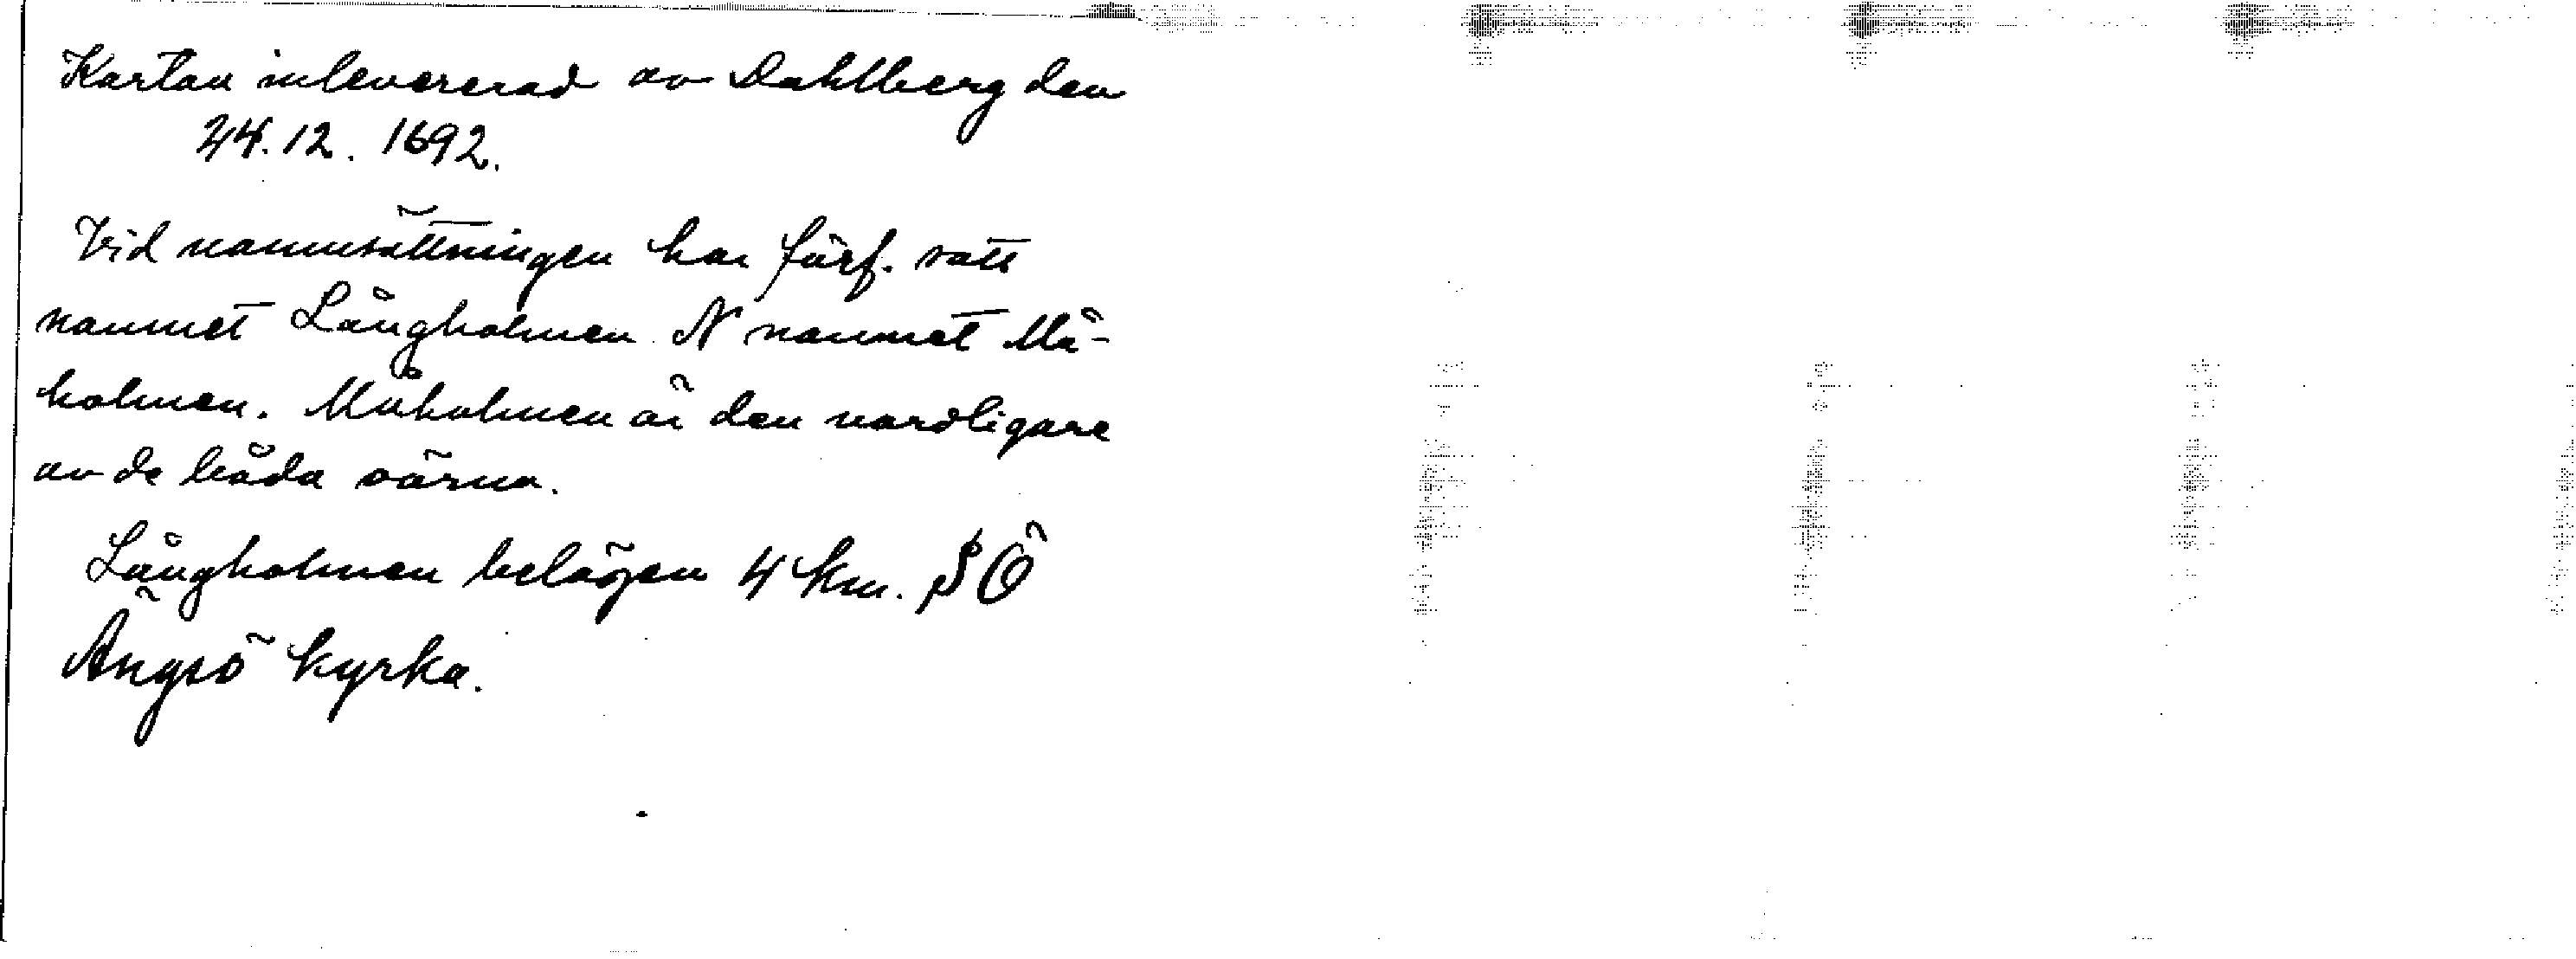 Kartan inlevererad av Dahlberg den
24.12.1692.
Vid namnsättningen har förf. satt
namnet Långholmen N namnet Må-
holmen. Måholmen är den nordligare
av de båda öarna.
Långholmen belägen 4 km. SÖ
Ängsö kyrka.